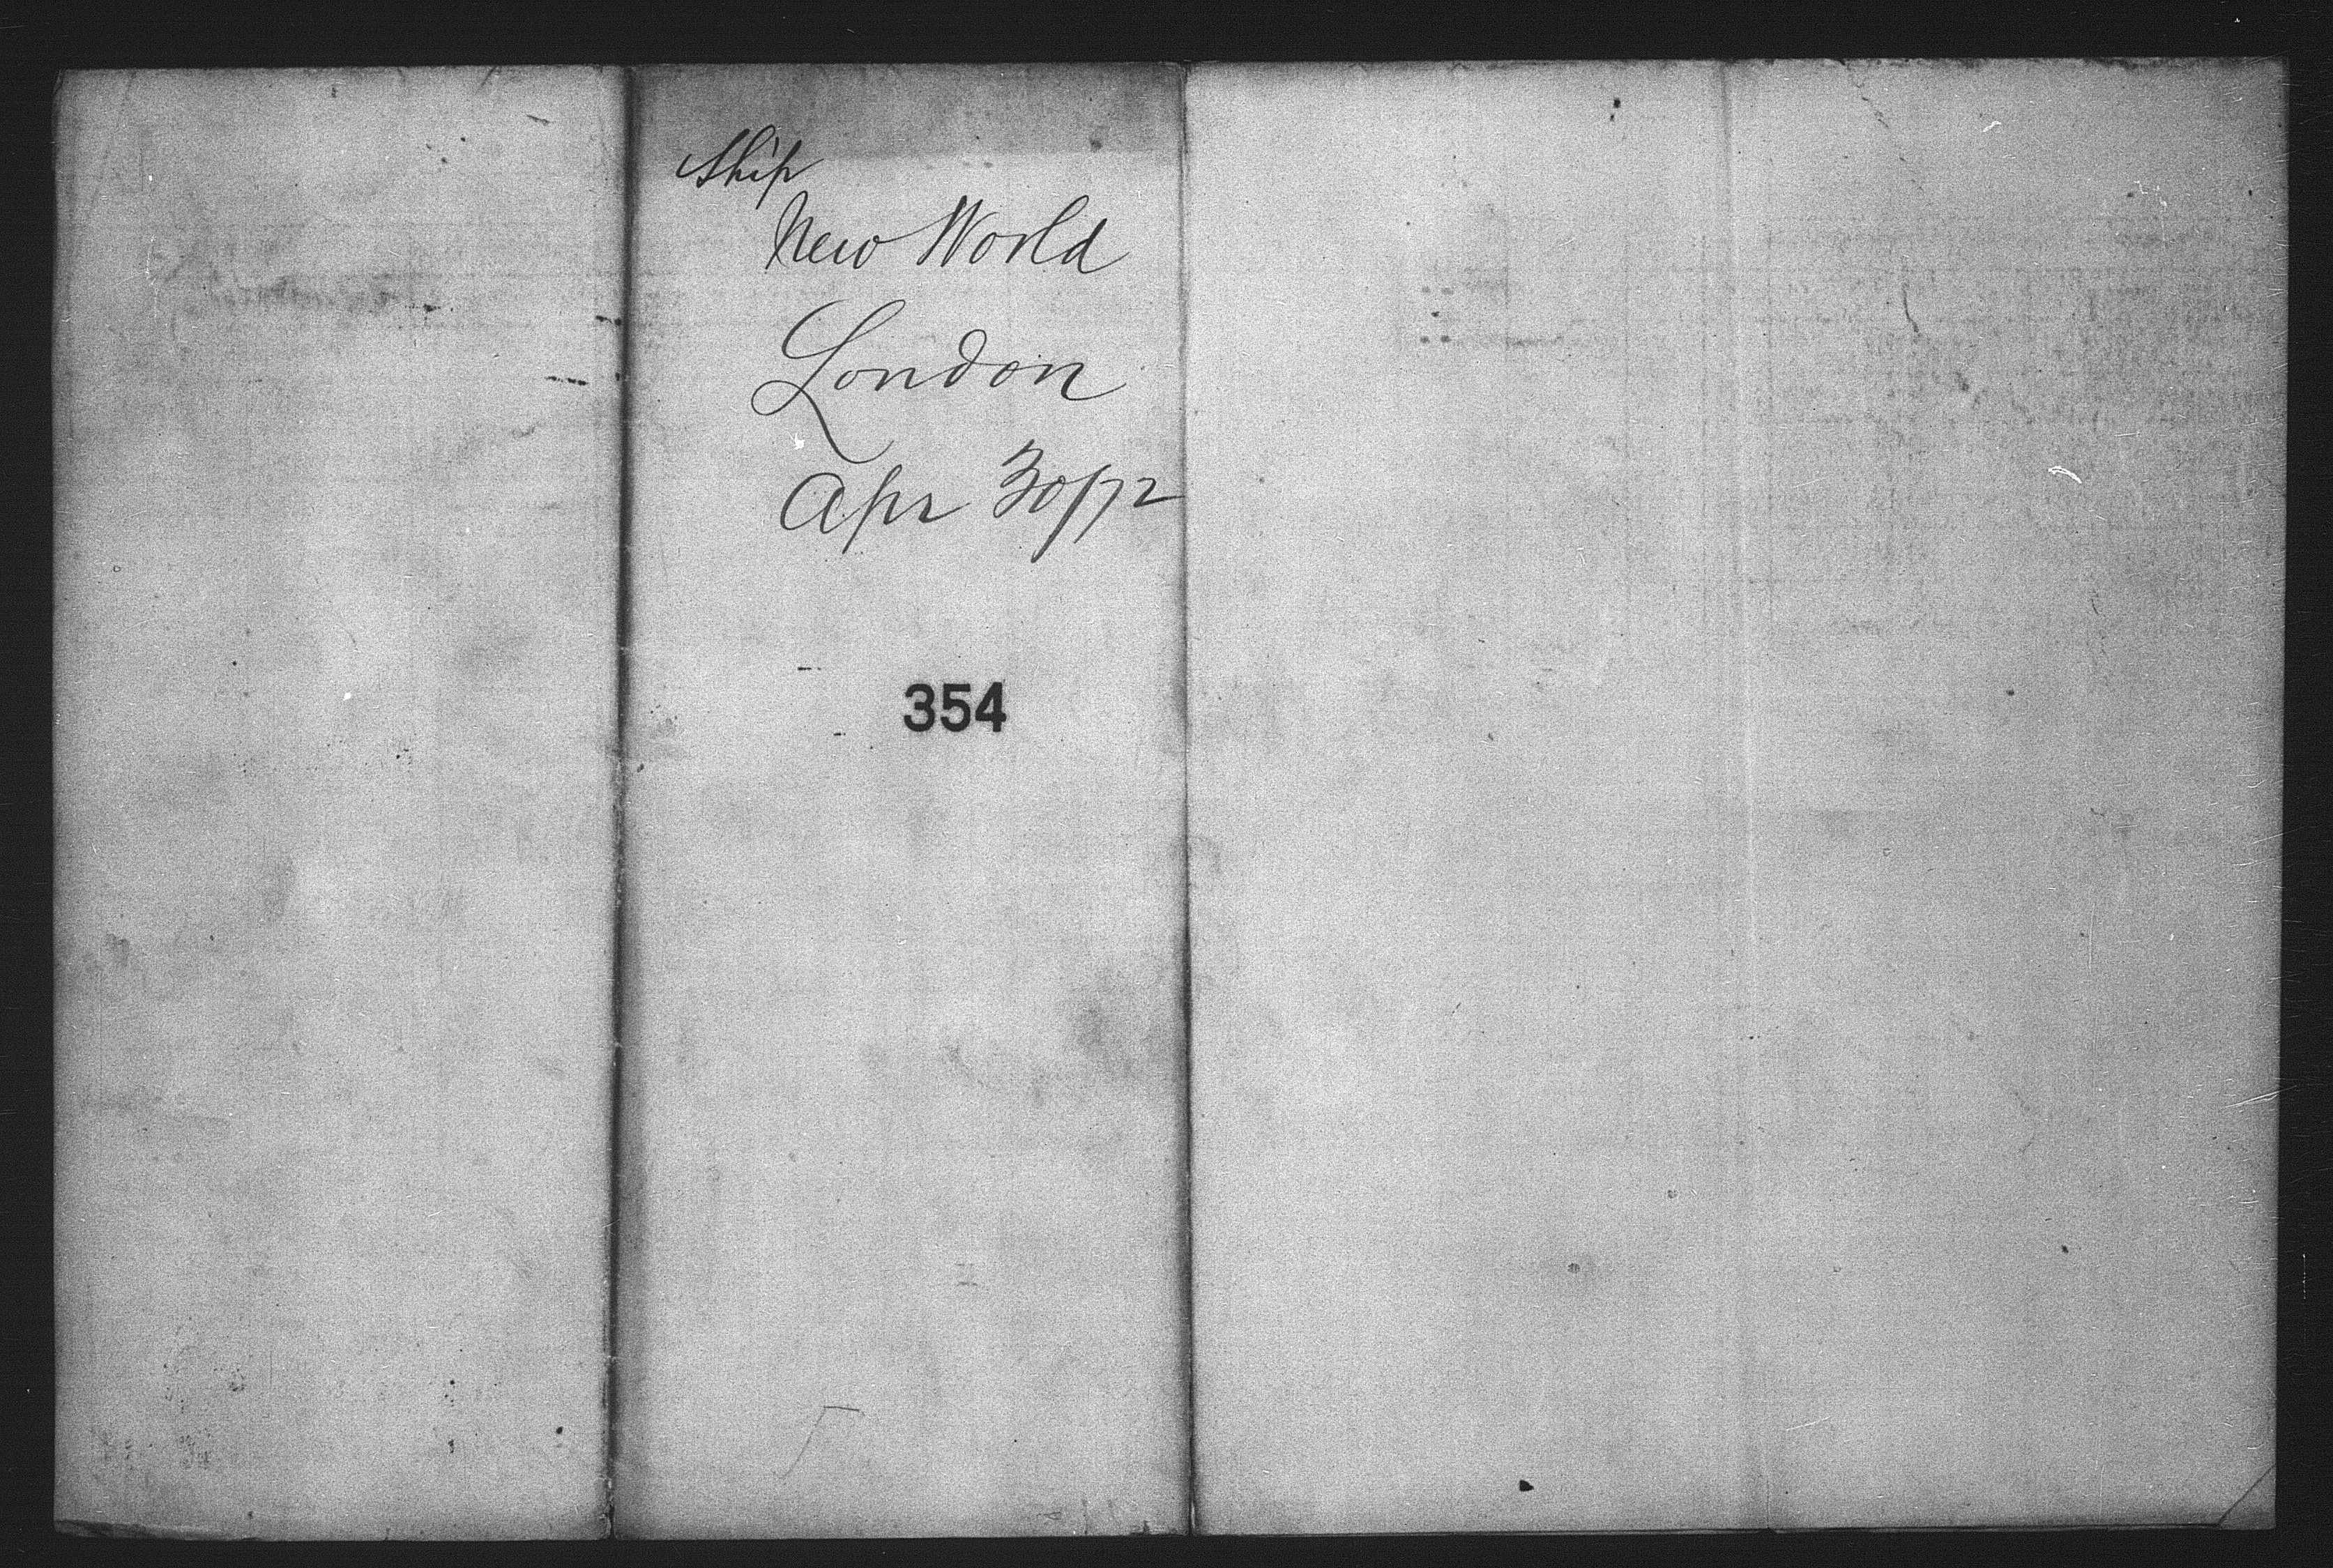 Ship
New World
London
Apr 30/72
354